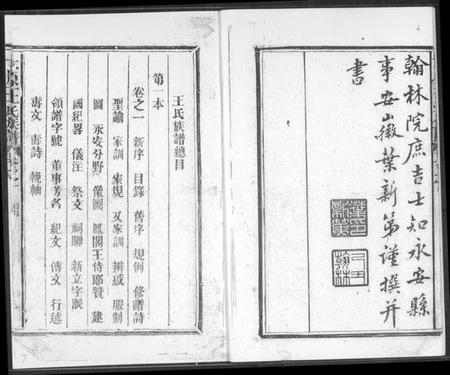 翰林院庶吉士知永安縣
事安山徽葉新第謹撰并
書
王氏族譜總目
第一本
卷之一 新序 目錄 舊序 規例 修譜詩
聖諭 家訓 家規 又家訓 辨惑 服制
圖 永安分野 像圖 鳳閣王侍郎贊 建
國紀畧 儀注 祭文 祠聯 新立字派
領譜字號 董事芳名 紀文 傳文 行述
壽文 壽詩 輓軸
王氏族譜